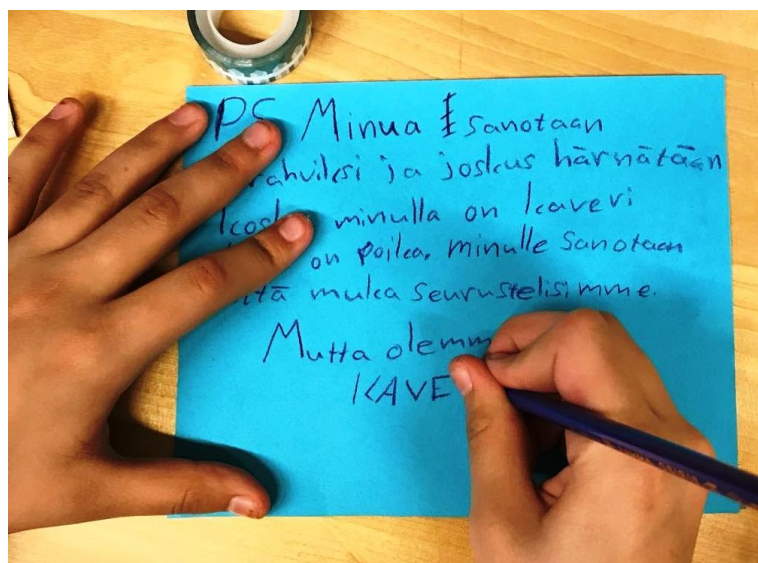 PS Minua sanotaan
rahviksi ja joskus härnätään
koska minulla on kaveri
on poika. minulle sanotaan
että muka seurustelisimme.
Mutta olemm
KAVE